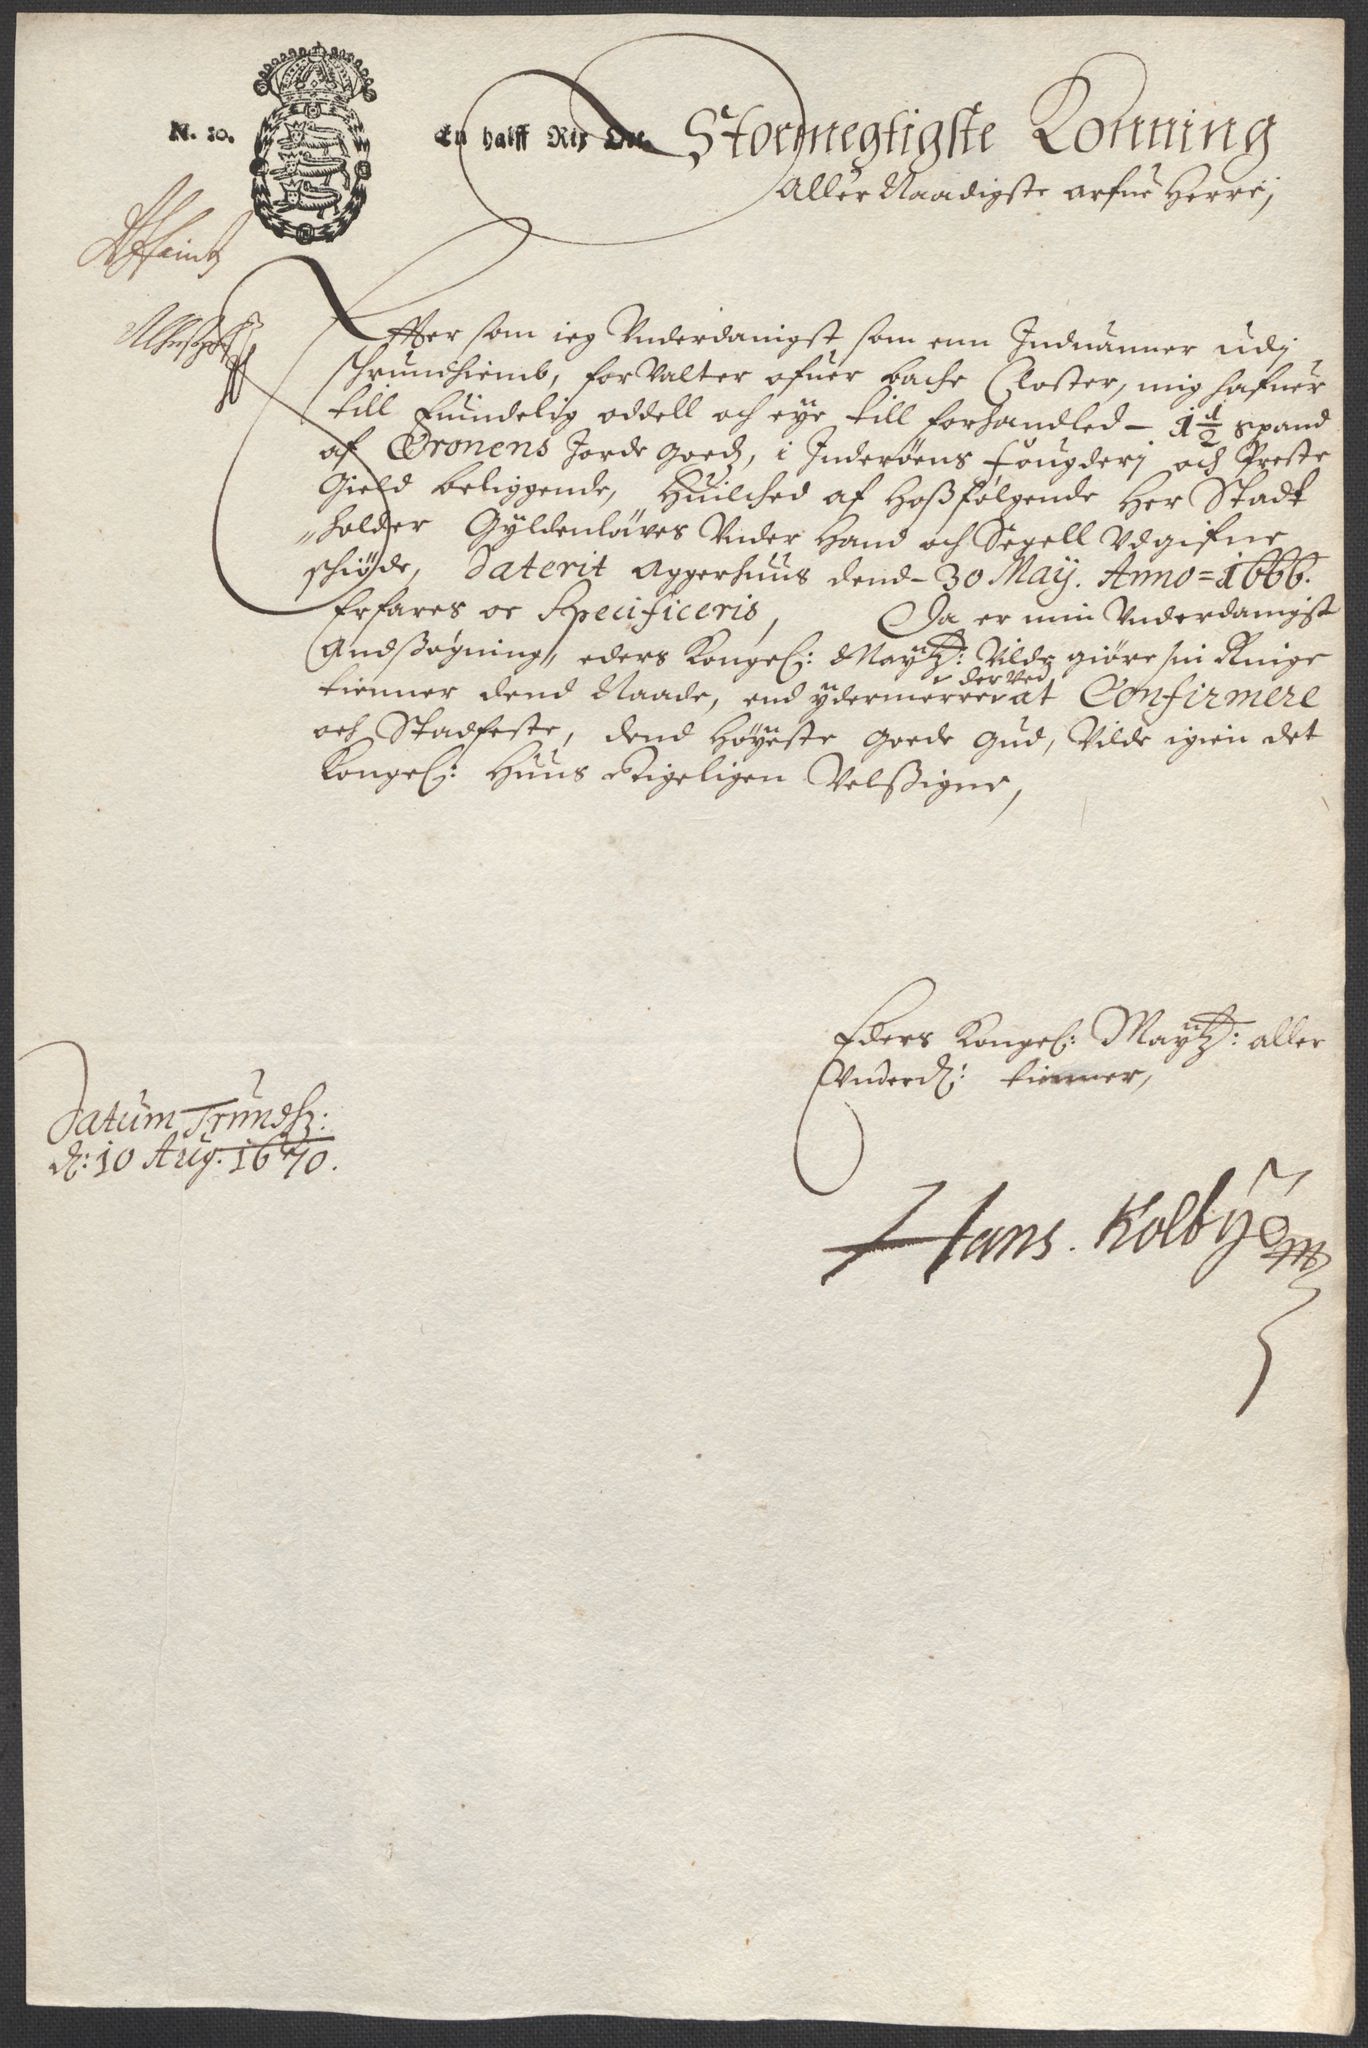 N. 20.
En halff Rix Ort.
Stormegtigste Konning
Aller Naadigste arfue Herre,
Effter som ieg Vnderdanigst som enn Induaaner udj
thrundhiemb, forValter ofuer bache Closter, mig hafuer
till Euindelig oddell och eye till forhandled - 1½ spand
af Cronens Jorde goedz, i Inderøens fougderj och Preste
Gield beliggende, Huilched af Hoßfølgende Her Stadt
"holder Gyldenløves Vnder Hand och Segell Vdgifne
schiøde, Daterit Aggerhuus dend - 30 May. Anno = 1666.
Erfares oc Specificeris, Da er min Vnderdanigst
Andßøgning, eders Kongel: Maytz: Vilde giøre sin Ringe
tienner dend Naade, end ydermerre derVed at Confirmere
och Stadfeste, dend Høyeste goede Gud, Vilde igien det
Kongel: Huus Rigeligen Velßigne,
Eders Kongel: Maytz: aller
Vnderd: tienner,
Datum Trundh:
d: 10 Aug: 1670.
Hans. Kolbÿe